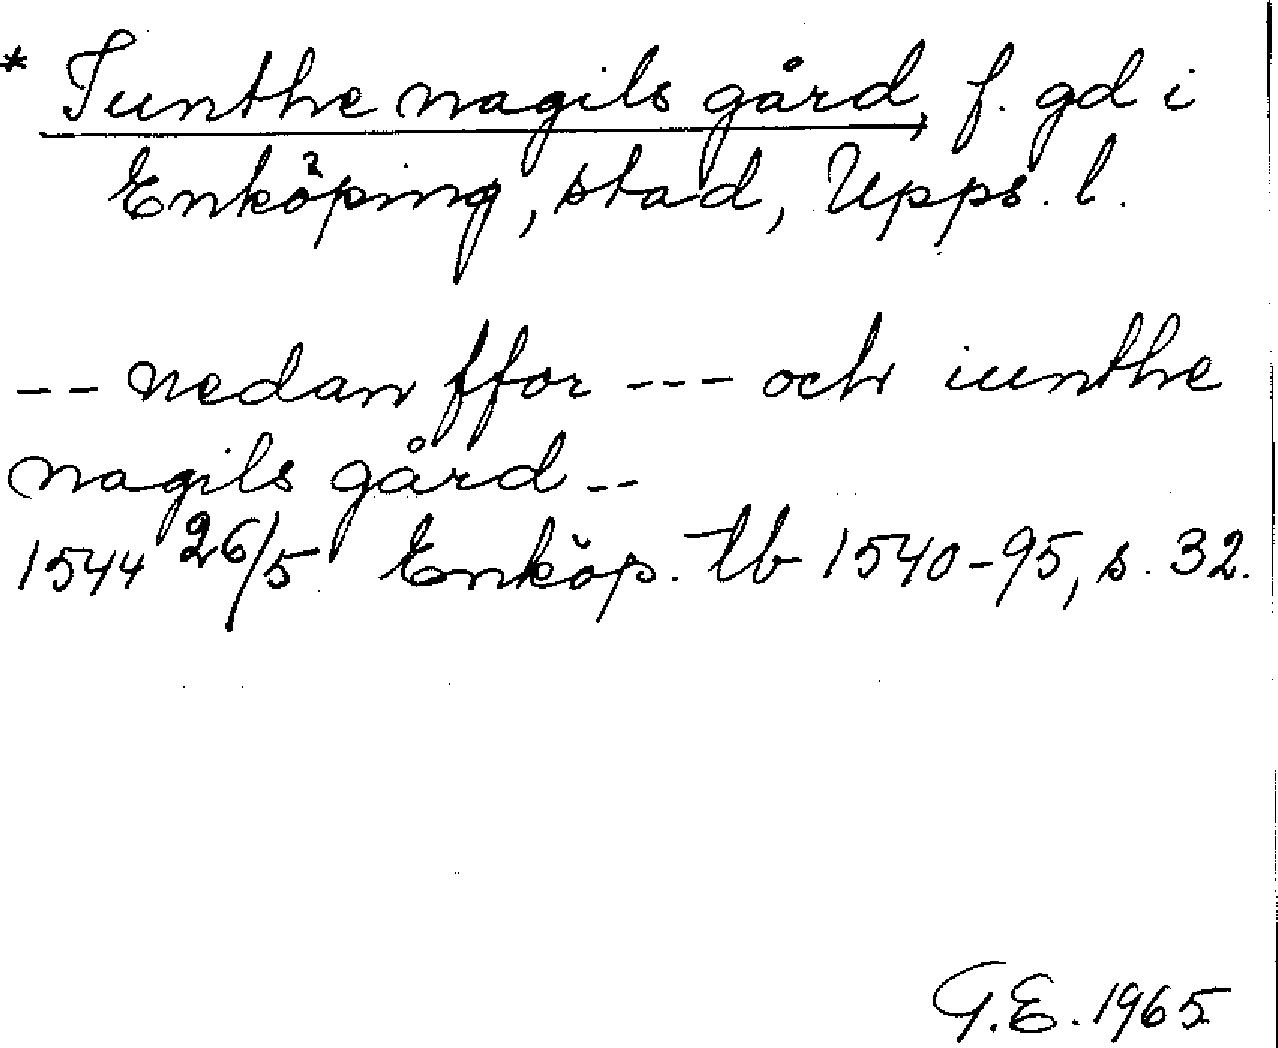 * Iunthe nagils gård, f. gd i
Enköping, stad, Upps. l.
-- nedan ffor --- och iunthe
nagils gård --
1544 26/5 Enköp. tb 1540-95, s. 32.
G.E. 1965